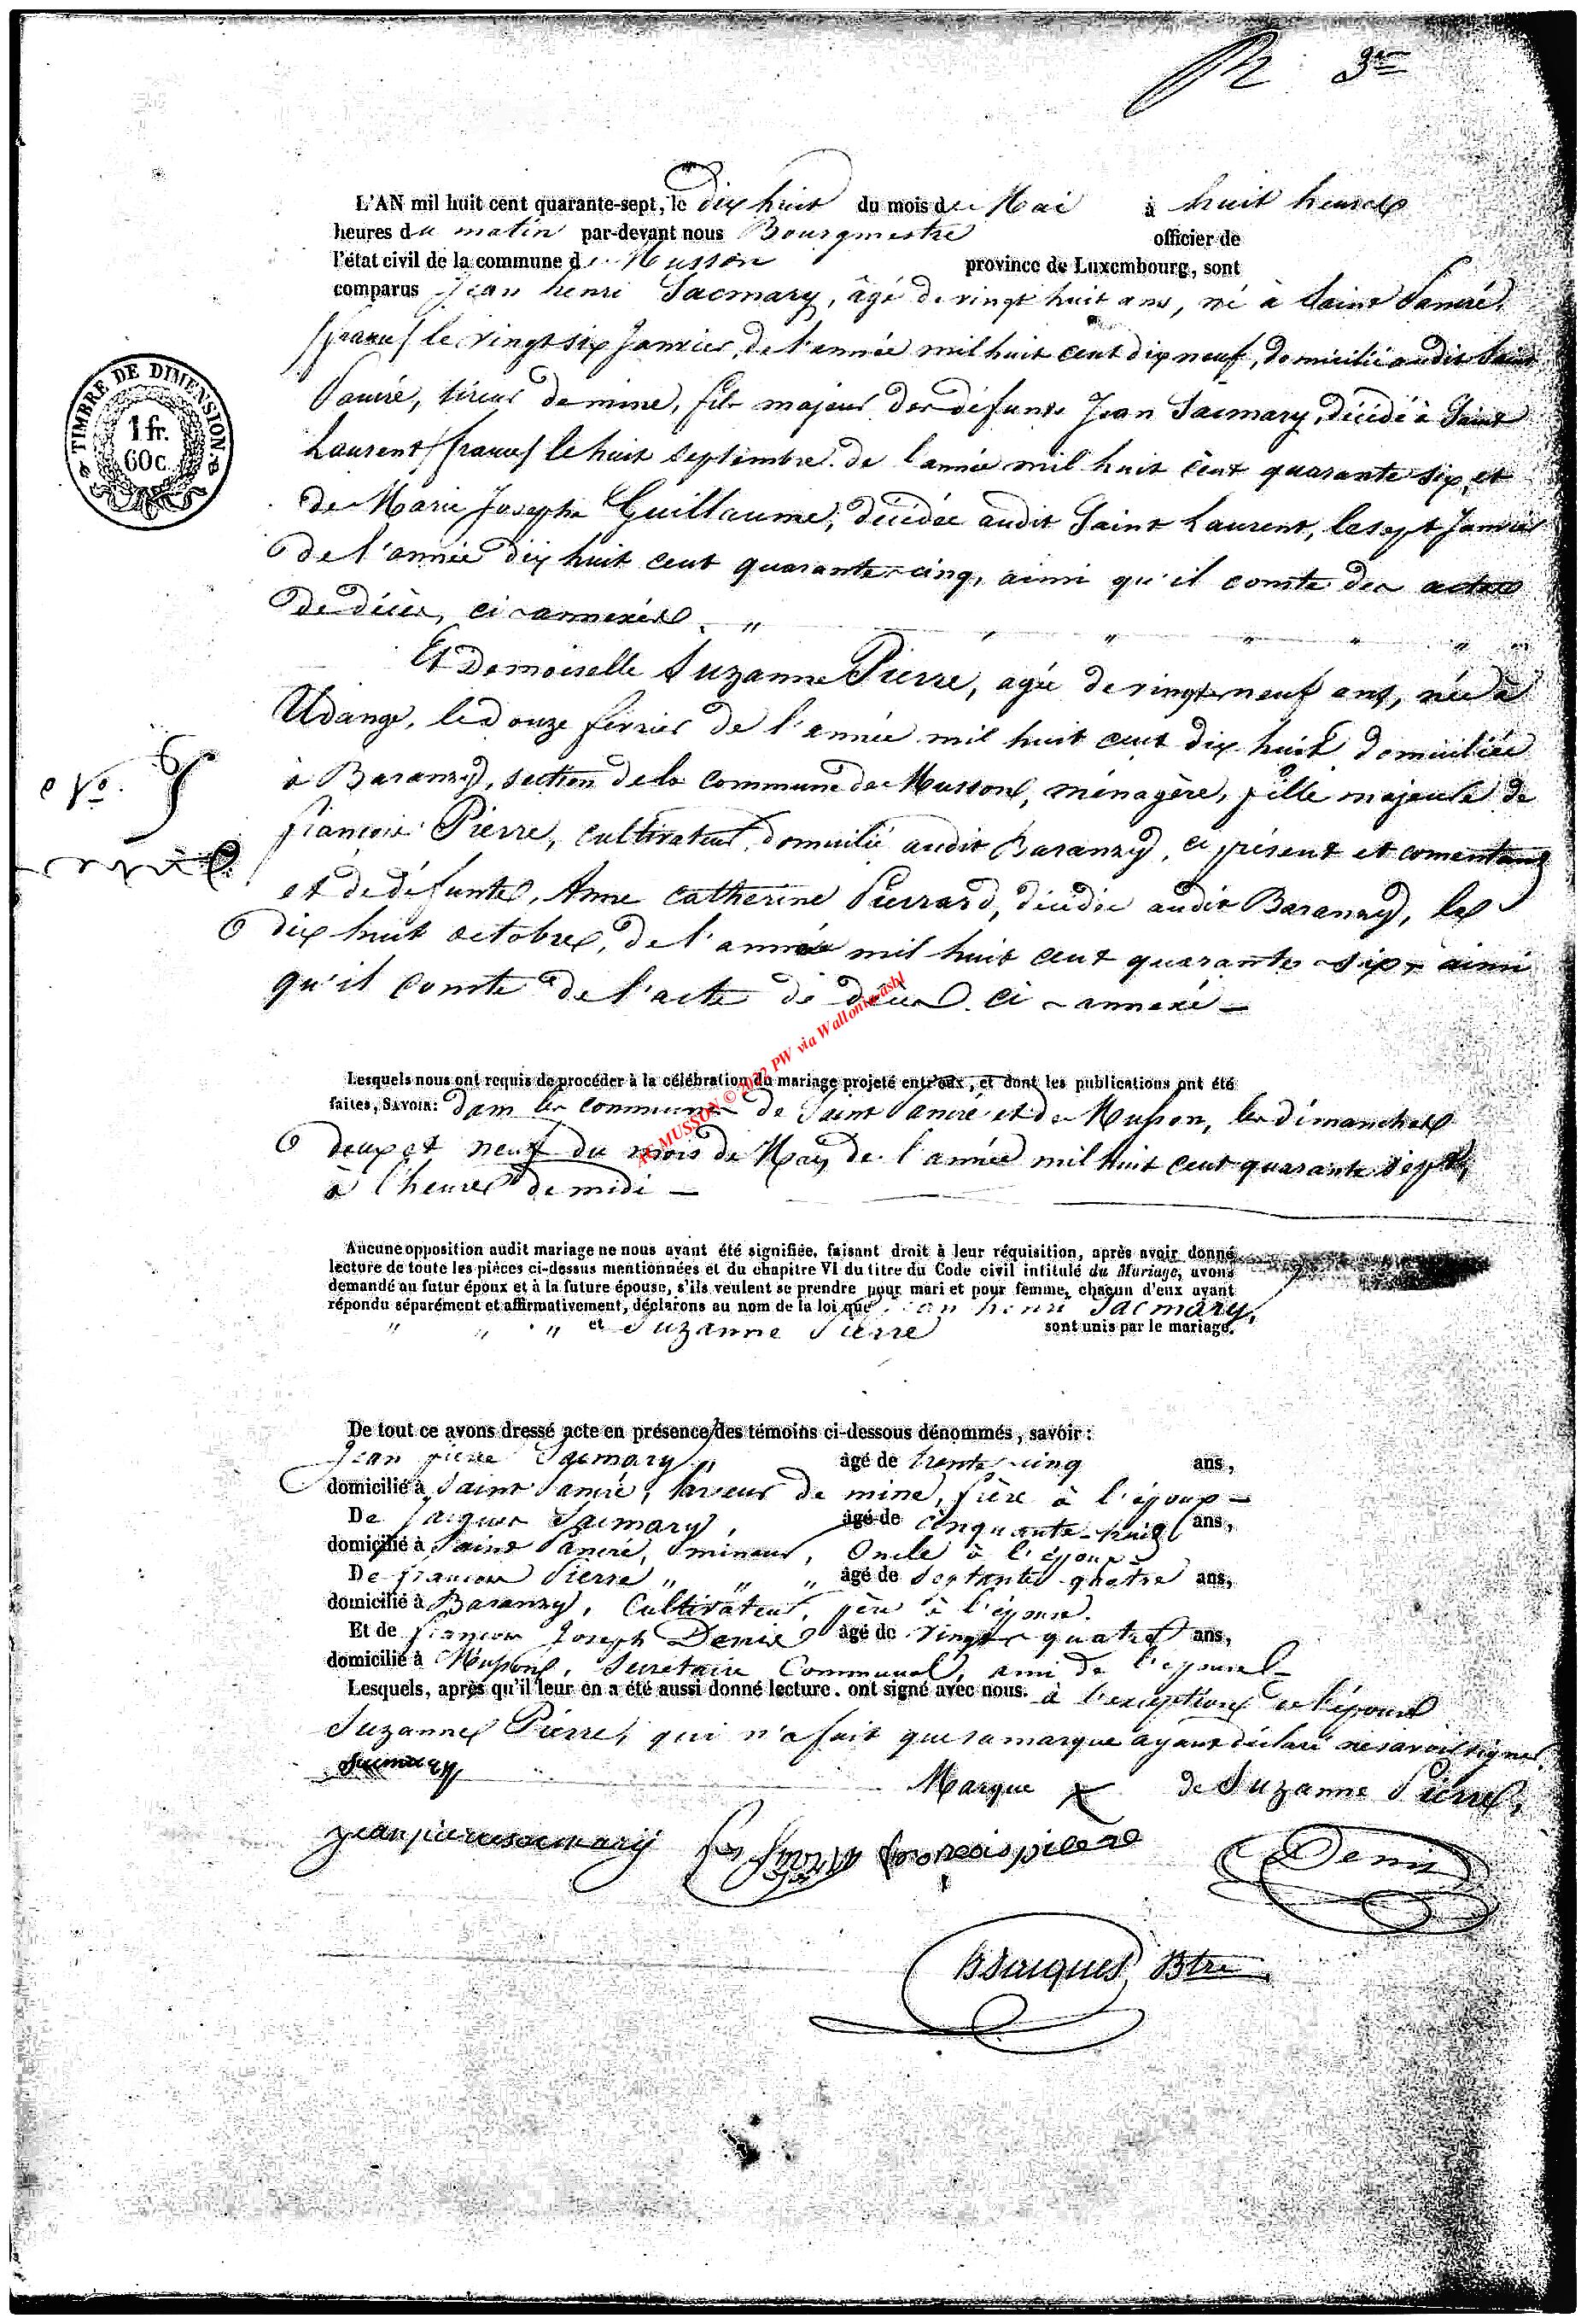 3me
L'AN mil huit cent quarante-sept, le dix huit du mois de Mai à huit heures
heures du matin par-devant nous Bourgmestre officier de
l'état civil de la commune de Musson province de Luxembourg, sont
comparus Jean henri Sacmary, âgé de vingt huit ans, né à Saint Pancré,
(france) le vingt six Janvier, de l'année mil huit cent dix neuf, domicilié audit Saint
Pancré, tireur de mine, fils majeur des défunts Jean Sacmary, décédé à Saint
Laurent (france) le huit septembre de l'année mil huit cent quarante six, et
de Marie Josephe Guillaume, décédée audit Saint Laurent, le sept Janvier
de l'année dix huit cent quarante-cinq, ainsi qu'il conste des actes
de décès, ci-annexés. " " " " " "
Et Demoiselle Suzanne Pierre, agée de vingt-neuf ans, née à
Udange, le douze février de l'année mil huit cent dix huit domiciliée
à Baranzy, section de la commune de Musson, ménagère, fille majeure de
françois Pierre, cultivateur, domicilié audit Baranzy, ci présent et consentant
et de défunte, Anne Catherine Pierrard, décédée audit Baranzy, le
dix huit octobre, de l'année mil huit cent quarante-six, ainsi
qu'il conste de l'acte de décès ci-annexé —
No. 5
AC MUSSON © 2022 PW via Wallonia asbl
Lesquels nous ont requis de procéder à la célébration du mariage projeté entr'eux, et dont les publications ont été
faites, SAVOIR: dans les communes de Saint Pancré et de Musson, les dimanches
deux et neuf du mois de May de l'année mil huit cent quarante sept,
à l'heure de midi —
Aucune opposition audit mariage ne nous ayant été signifiée, faisant droit à leur réquisition, après avoir donné
lecture de toute les pièces ci-dessus mentionnées et du chapitre VI du titre du Code civil intitulé du Mariage, avons
demandé au futur époux et à la future épouse, s'ils veulent se prendre pour mari et pour femme, chacun d'eux ayant
répondu séparément et affirmativement, déclarons au nom de la loi que Jean henri Sacmary,
" " " et Suzanne Pierre sont unis par le mariage.
De tout ce avons dressé acte en présence des témoins ci-dessous dénommés, savoir:
Jean pierre Sacmary " âgé de trente-cinq ans,
domicilié à Saint Pancré, laveur de mine, frère à l'époux —
De Jacques Sacmary, âgé de cinquante-huit ans,
domicilié à Saint Pancré, mineur, Oncle à l'époux
De françois Pierre " " " âgé de Septante-quatre ans,
domicilié à Baranzy, Cultivateur, père à l'épouse.
Et de françois Joseph Denis âgé de vingt-quatre ans,
domicilié à Musson, Secretaire Communal, ami de l'épouse —
Lesquels, après qu'il leur en a été aussi donné lecture, ont signé avec nous. à l'exception de l'épouse
Suzanne Pierre, qui n'a fait que sa marque ayant déclaré ne savoir signer.
Sacmary
Marque X de Suzanne Pierre,
jean pierre sacmary françois pierre Denis
Jacques Btre
TIMBRE DE DIMENSION
1 fr.
60c.